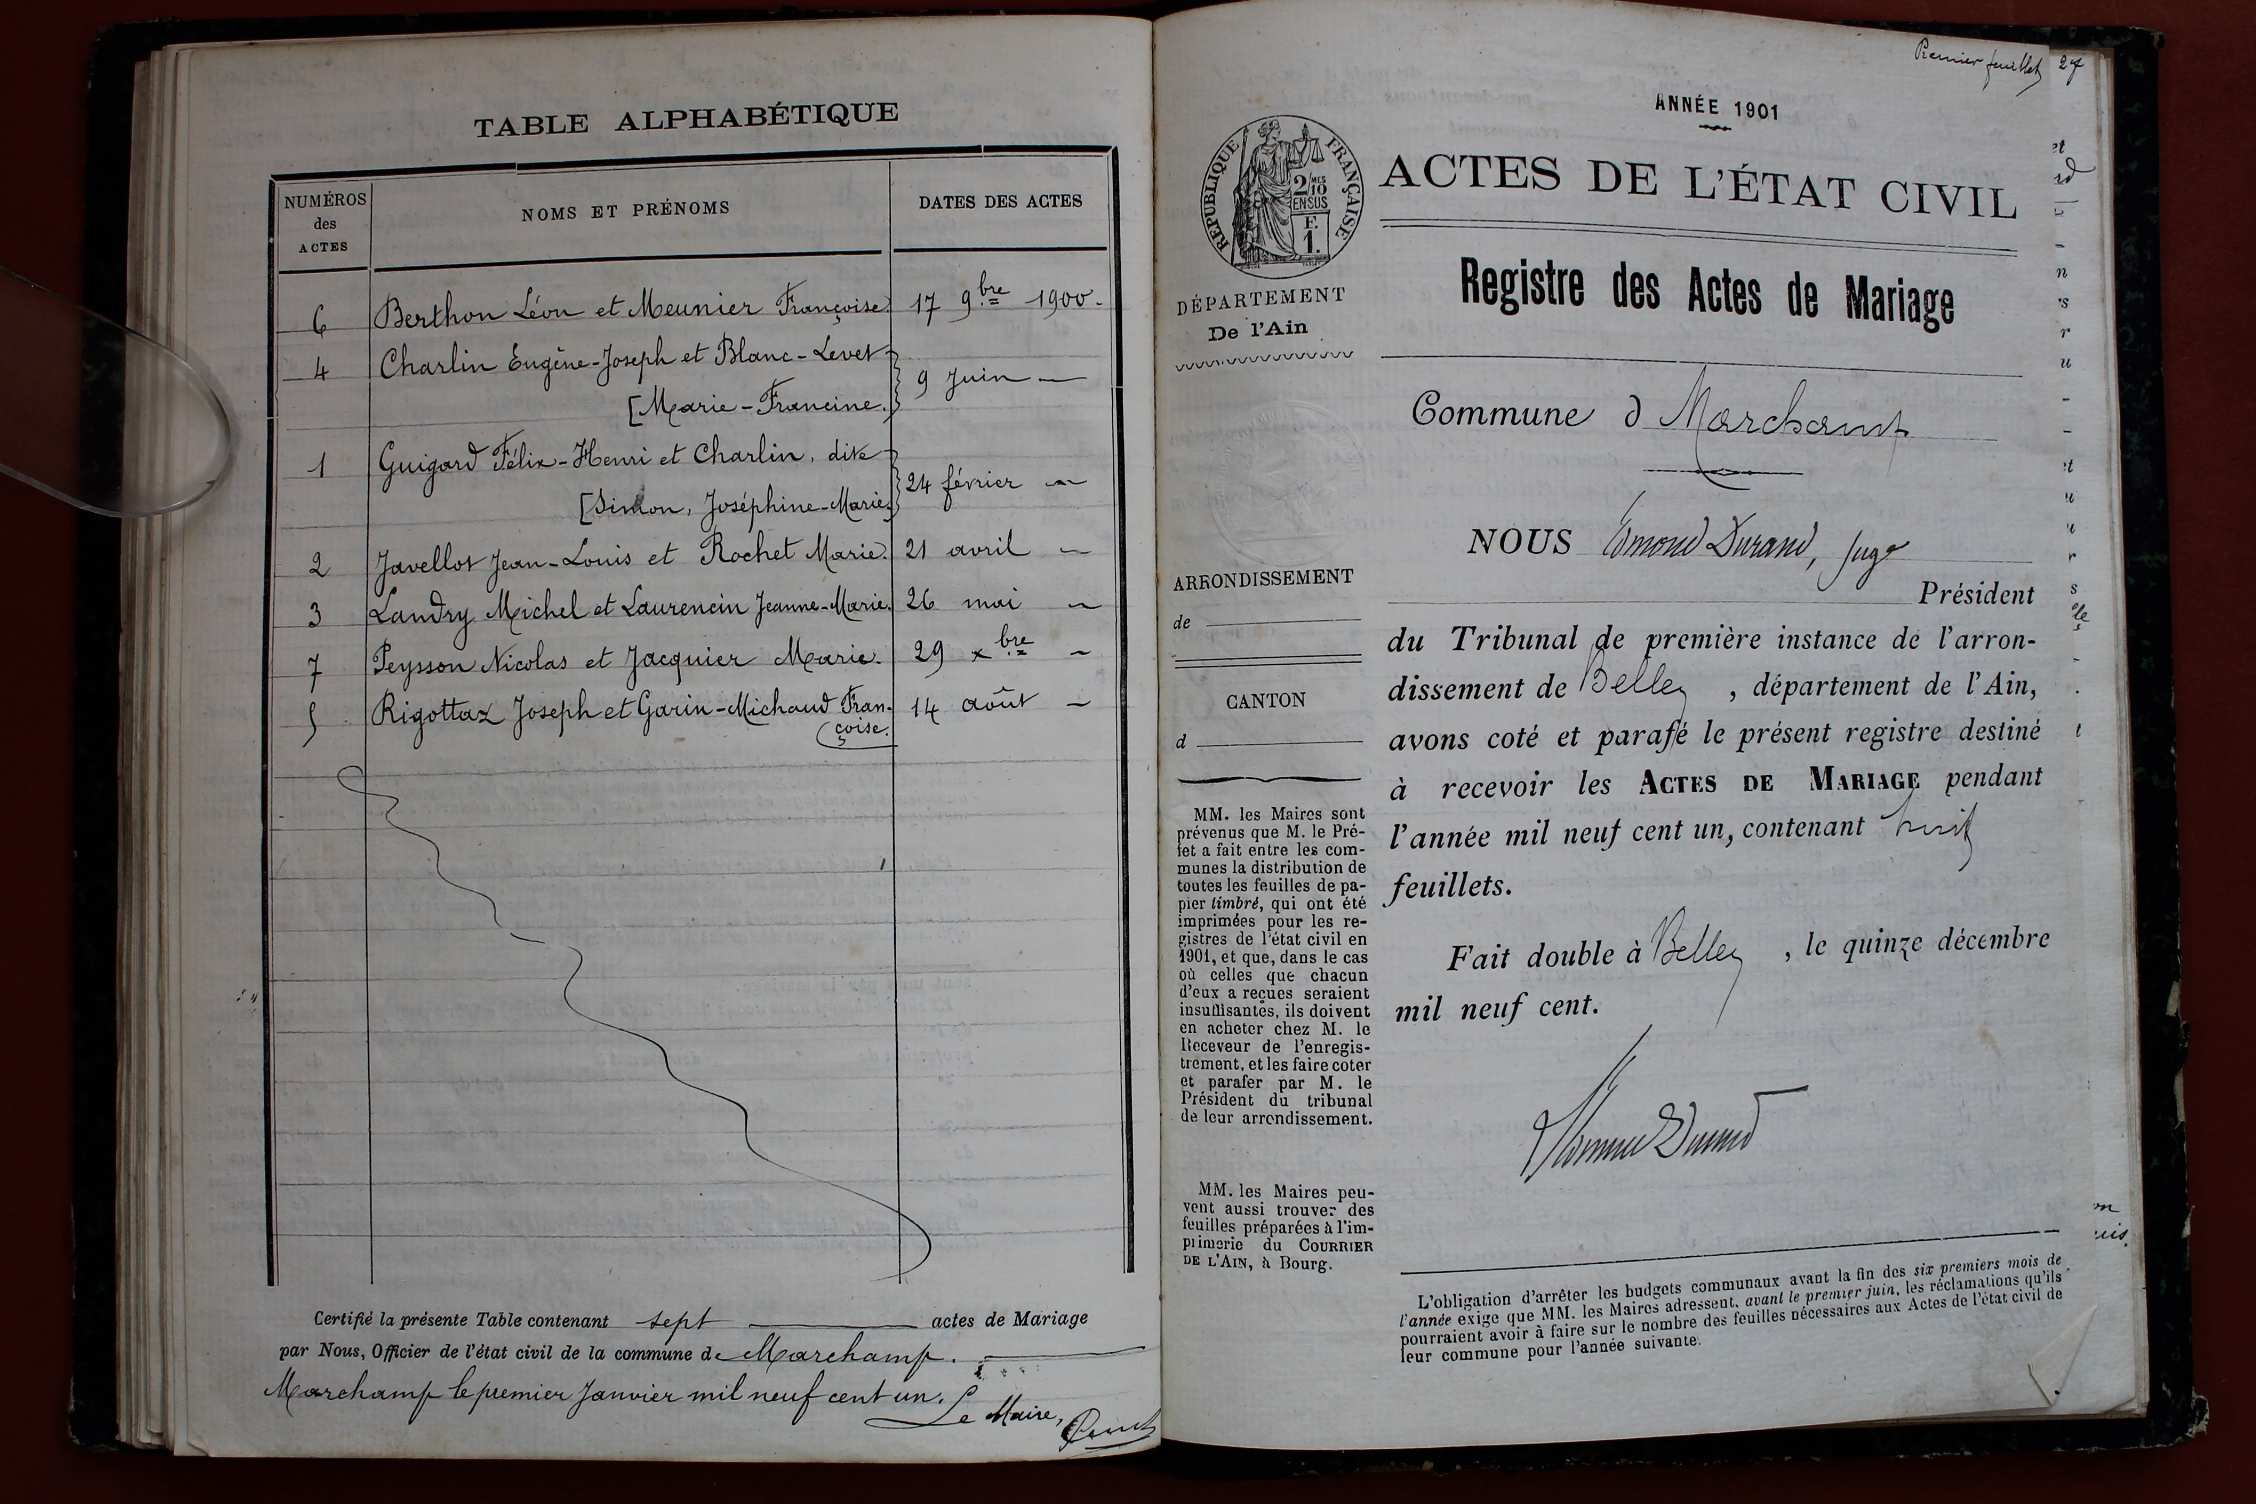 TABLE ALPHABÉTIQUE
NUMÉROS
des
ACTES
NOMS ET PRÉNOMS
DATES DES ACTES
6 Berthon Léon et Meunier Françoise. 17 9bre 1900.
4 Charlin Eugène-Joseph et Blanc-Levet
[Marie-Francine. 9 Juin —
1 Guigard Félix-Henri et Charlin, dite
[Simon, Joséphine-Marie. 24 février —
2 Javellot Jean-Louis et Rochet Marie. 21 avril —
3 Landry Michel et Laurencin Jeanne-Marie. 26 mai —
7 Peysson Nicolas et Jacquier Marie. 29 xbre —
5 Rigottaz Joseph et Garin-Michaud Fran-
çoise. 14 août —
Certifié la présente Table contenant sept actes de Mariage
par Nous, Officier de l'état civil de la commune de Marchamp.
Marchamp le premier Janvier mil neuf cent un.
Le Maire,
Premier feuillet 27
ANNÉE 1901
RÉPUBLIQUE FRANÇAISE
2/10 MES
EN SUS
F.
1.
ACTES DE L'ÉTAT CIVIL
DÉPARTEMENT
De l'Ain
Registre des Actes de Mariage
Commune d Marchamp
NOUS Edmond Durand, Juge
Président
ARRONDISSEMENT
de
CANTON
d
du Tribunal de première instance de l'arron-
dissement de Belley, département de l'Ain,
avons coté et parafé le présent registre destiné
à recevoir les ACTES DE MARIAGE pendant
l'année mil neuf cent un, contenant huit
feuillets.
Fait double à Belley, le quinze décembre
mil neuf cent.
Edmond Durand
MM. les Maires sont
prévenus que M. le Pré-
fet a fait entre les com-
munes la distribution de
toutes les feuilles de pa-
pier timbré, qui ont été
imprimées pour les re-
gistres de l'état civil en
1901, et que, dans le cas
où celles que chacun
d'eux a reçues seraient
insuffisantes, ils doivent
en acheter chez M. le
Receveur de l'enregis-
trement, et les faire coter
et parafer par M. le
Président du tribunal
de leur arrondissement.
MM. les Maires peu-
vent aussi trouver des
feuilles préparées à l'im-
primerie du COURRIER
DE L'AIN, à Bourg.
L'obligation d'arrêter les budgets communaux avant la fin des six premiers mois de
l'année exige que MM. les Maires adressent, avant le premier juin, les réclamations qu'ils
pourraient avoir à faire sur le nombre des feuilles nécessaires aux Actes de l'état civil de
leur commune pour l'année suivante.